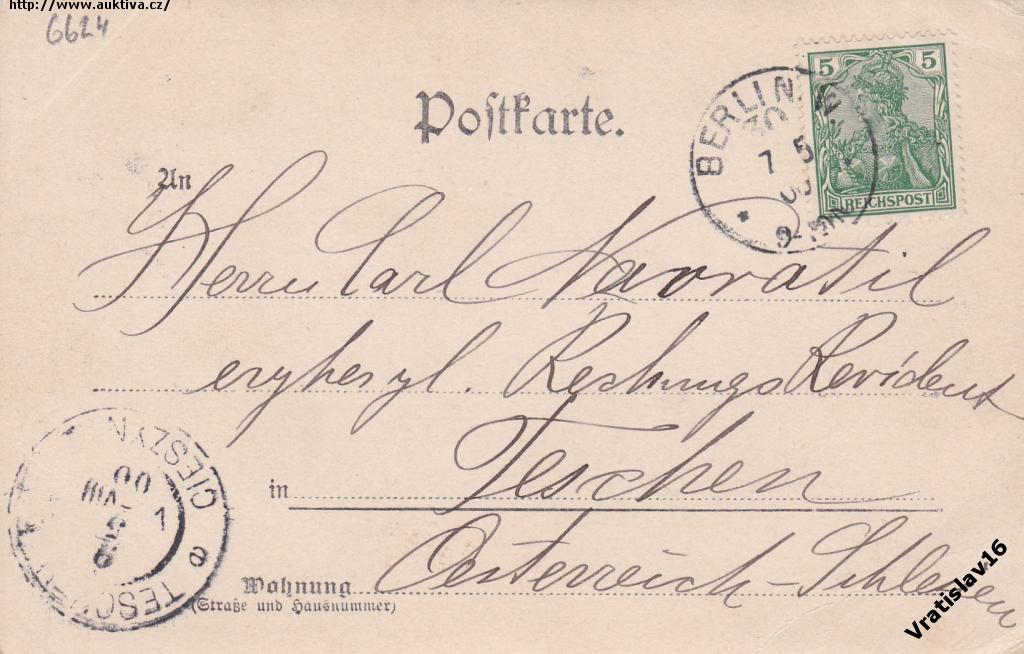 http://www.auktiva.cz/
6624
Postkarte.
5 5
REICHSPOST
BERLIN
7 5
00
An
Herrn Carl Navratil
erzherzgl. Rechnungs Revident
in Teschen
Oesterreich-Schlesien
Wohnung
(Straße und Hausnummer)
TESCHEN CIESZYN
VIII
00
Vratislav16